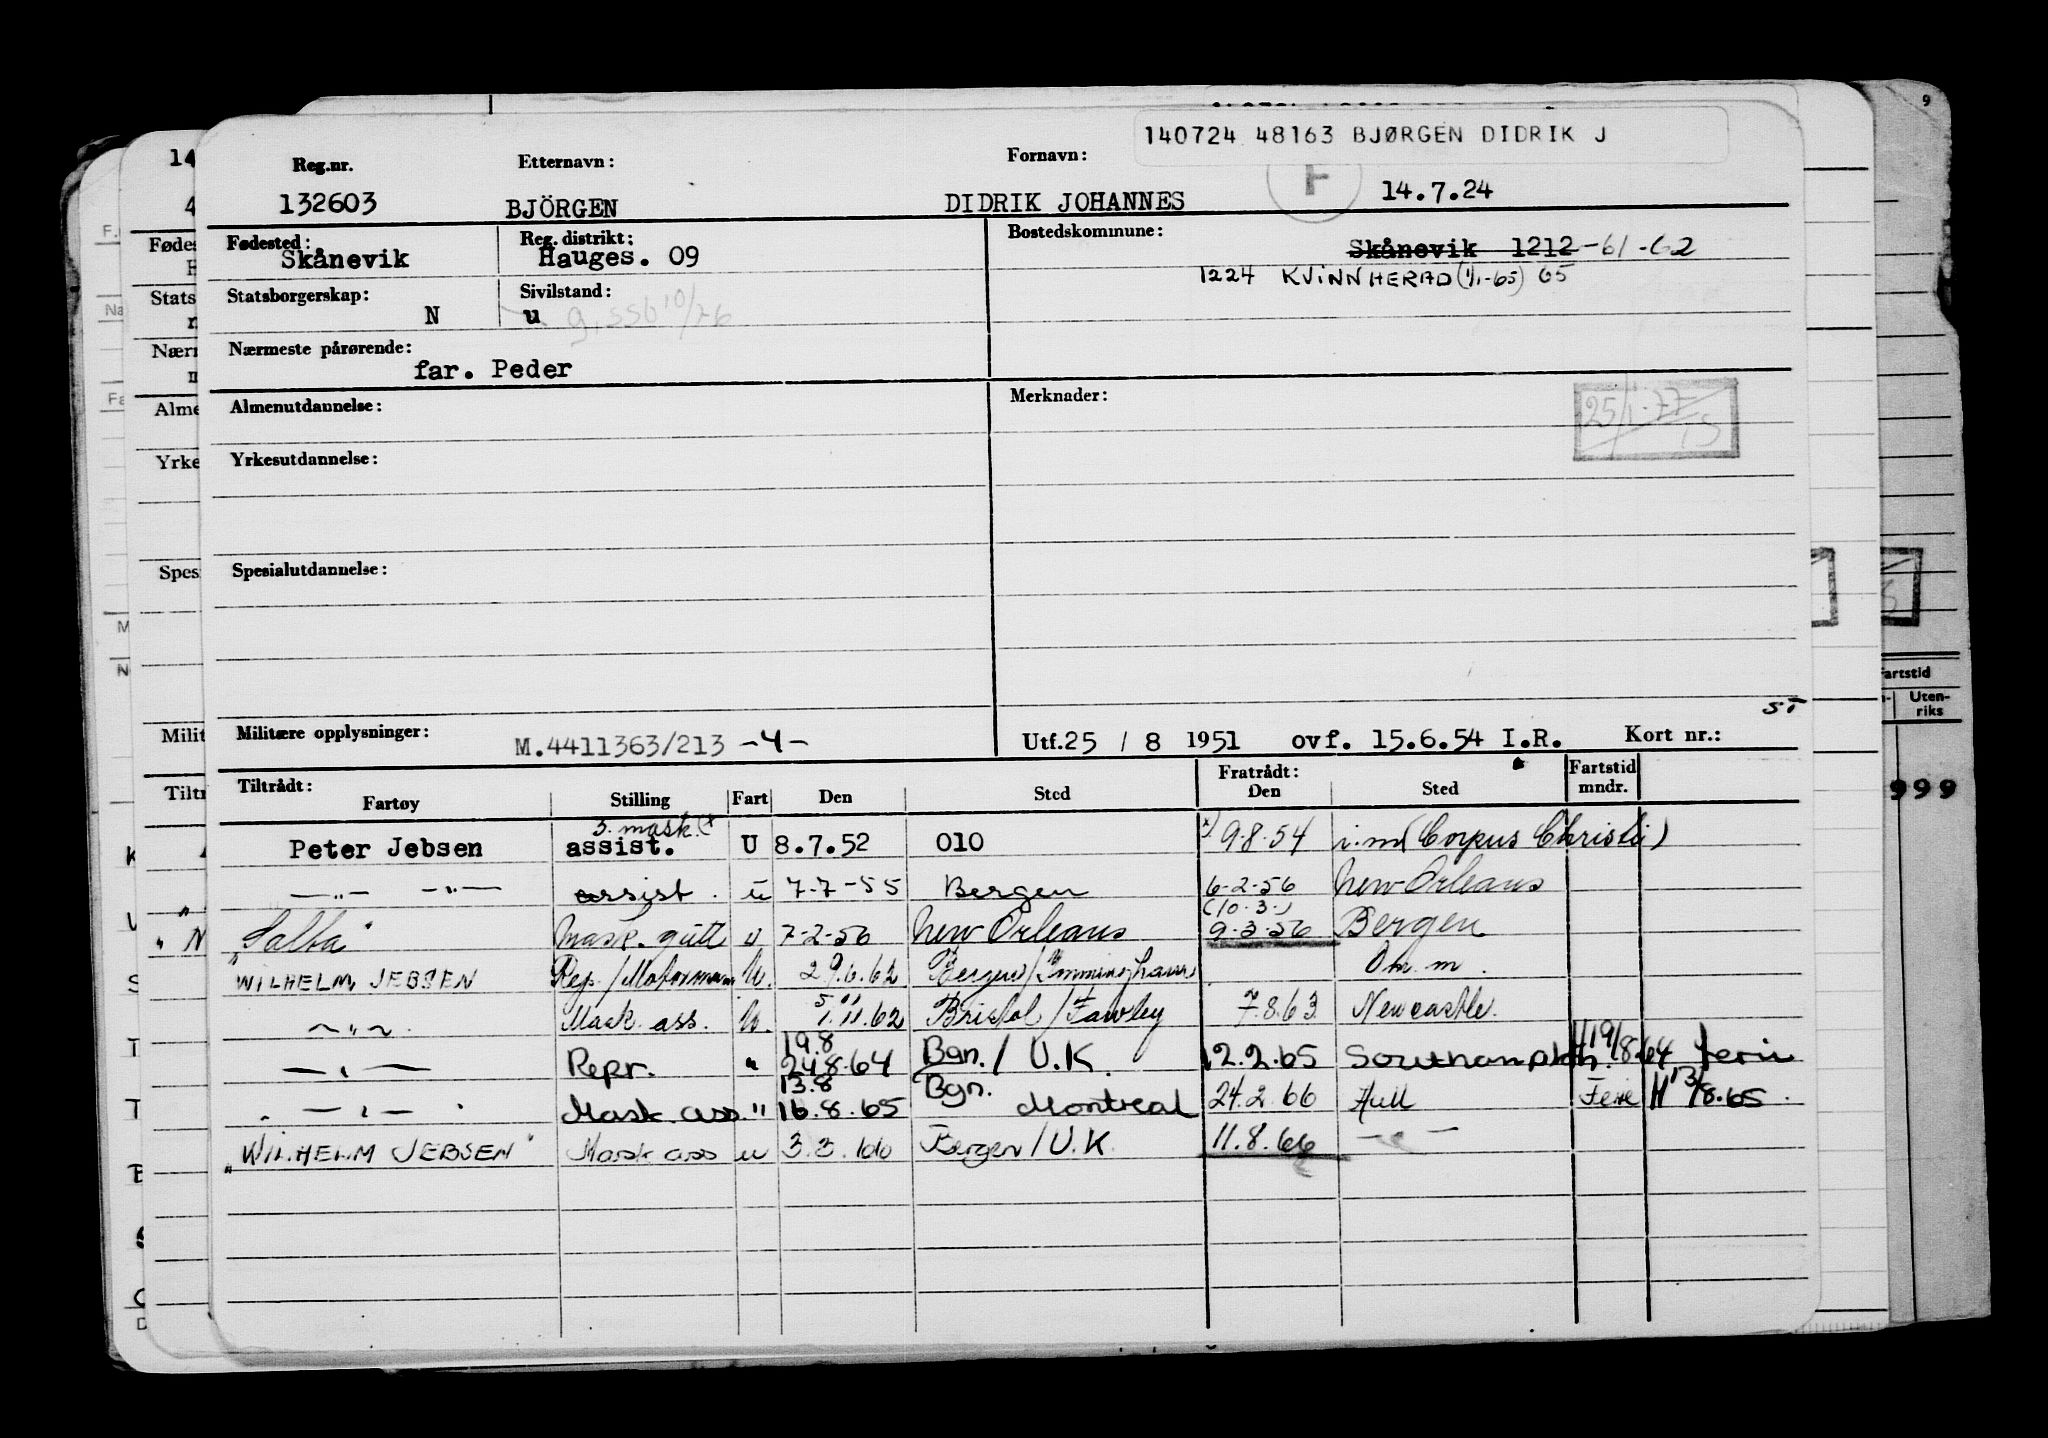 140724 48163 BJØRGEN DIDRIK J
Reg.nr. Etternavn: Fornavn: F
132603 BJÖRGEN DIDRIK JOHANNES 14.7.24
Fødested: Reg. distrikt: Bostedskommune:
Skånevik Hauges. 09 Skånevik 1212 -61-62
1224 KVINNHERAD (1/1-65) 65
Statsborgerskap: Sivilstand:
N u g. ssb 10/76
Nærmeste pårørende:
far. Peder
Almenutdannelse: Merknader:
25/1-77
Yrkesutdannelse:
Spesialutdannelse:
Militære opplysninger: M.4411363/213 -4- Utf.25 / 8 1951 ovf. 15.6.54 I.R. Kort nr.:
Tiltrådt: Fratrådt: Fartstid
Fartøy Stilling Fart Den Sted Den Sted mndr.
3. mask. (x
Peter Jebsen assist. U 8.7.52 010 x) 9.8.54 i.m (Corpus Christi)
—"— —"— assist. u 7-7-55 Bergen 6-2-56 New Orleans
(10.3.)
"Salta" Mask. gutt u 7-2-56 New Orleans 9-3-56 Bergen
"WILHELM JEBSEN Rep./Motormann U. 29.6.62 Bergen/Immingham Om.m.
—"— Mask. ass. U. 11.62 Bristol/Fawley 7.8.63 Newcastle.
19.8
—"— Repr. " 24.8.64 Bgn. / U.K. 12.2.65 Southampton. 19/8.64 ferie
13.8
—"— Mask. ass. " 16.8.65 Bgn. Montreal 24.2.66 Hull Ferie 13/8.65.
"WILHELM JEBSEN" Mask ass u 3.3.66 Bergen/U.K. 11.8.66 —"—
artstid
Uten-
riks
999
9